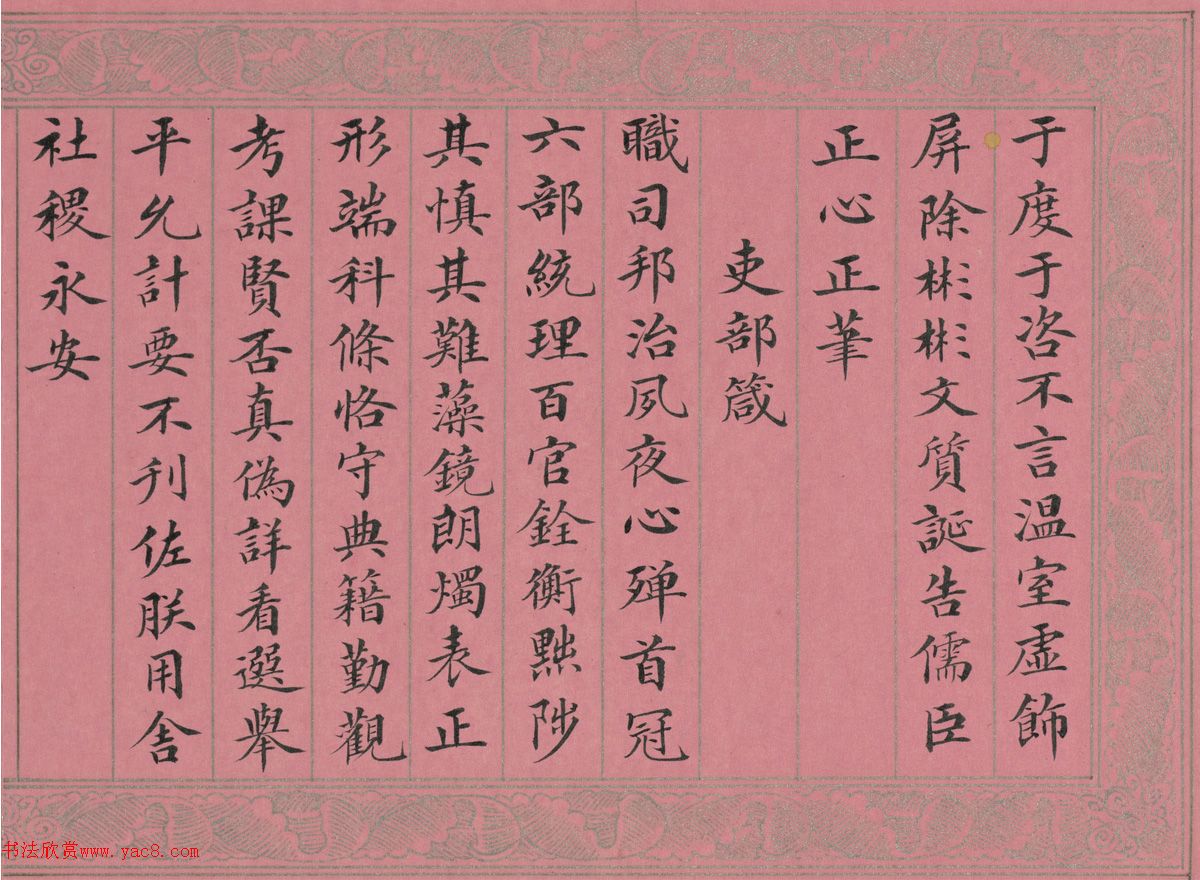 于度于咨不言温室虛飾
屏除彬彬文質誕告儒臣
正心正筆
吏部箴
職司邦治夙夜心殫首冠
六部統理百官銓衡黜陟
其慎其難藻鏡朗燭表正
形端科條恪守典籍勤觀
考課賢否真偽詳看選舉
平允計要不刋佐朕用舍
社稷永安
书法欣赏www.yac8.com